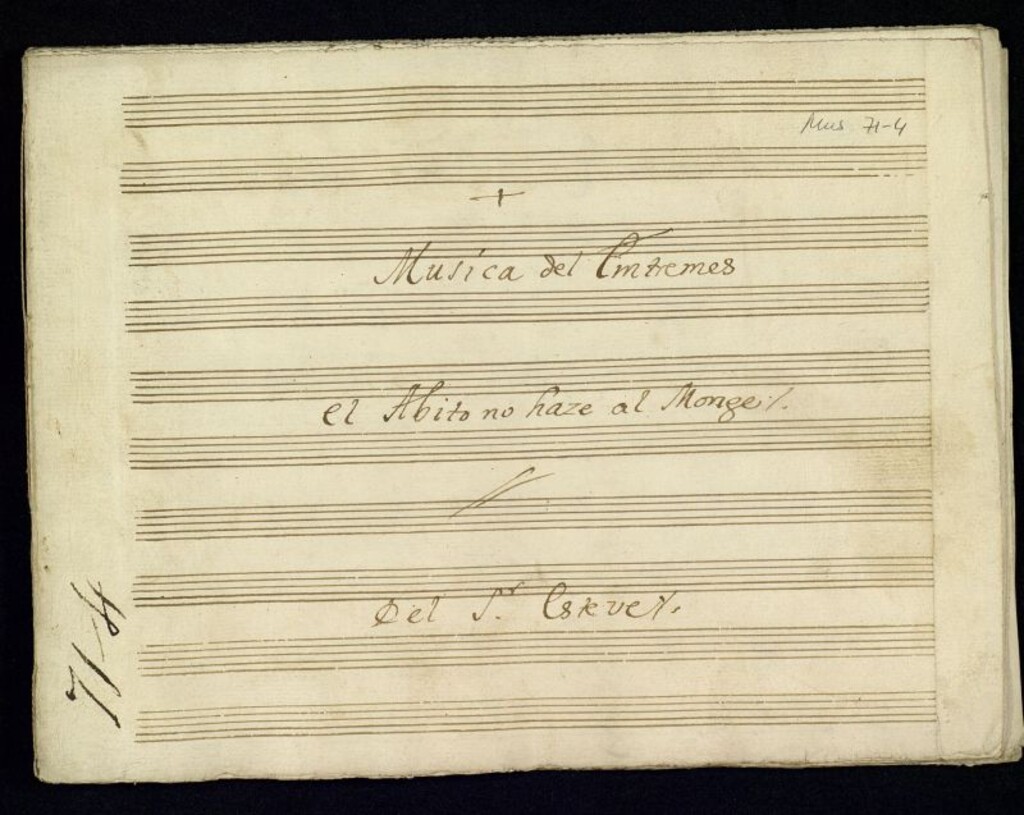 Mus 71-4
+
Musica del Entremes
el Abito no haze al Monge/.
Del S.r Esteve/.
71-4